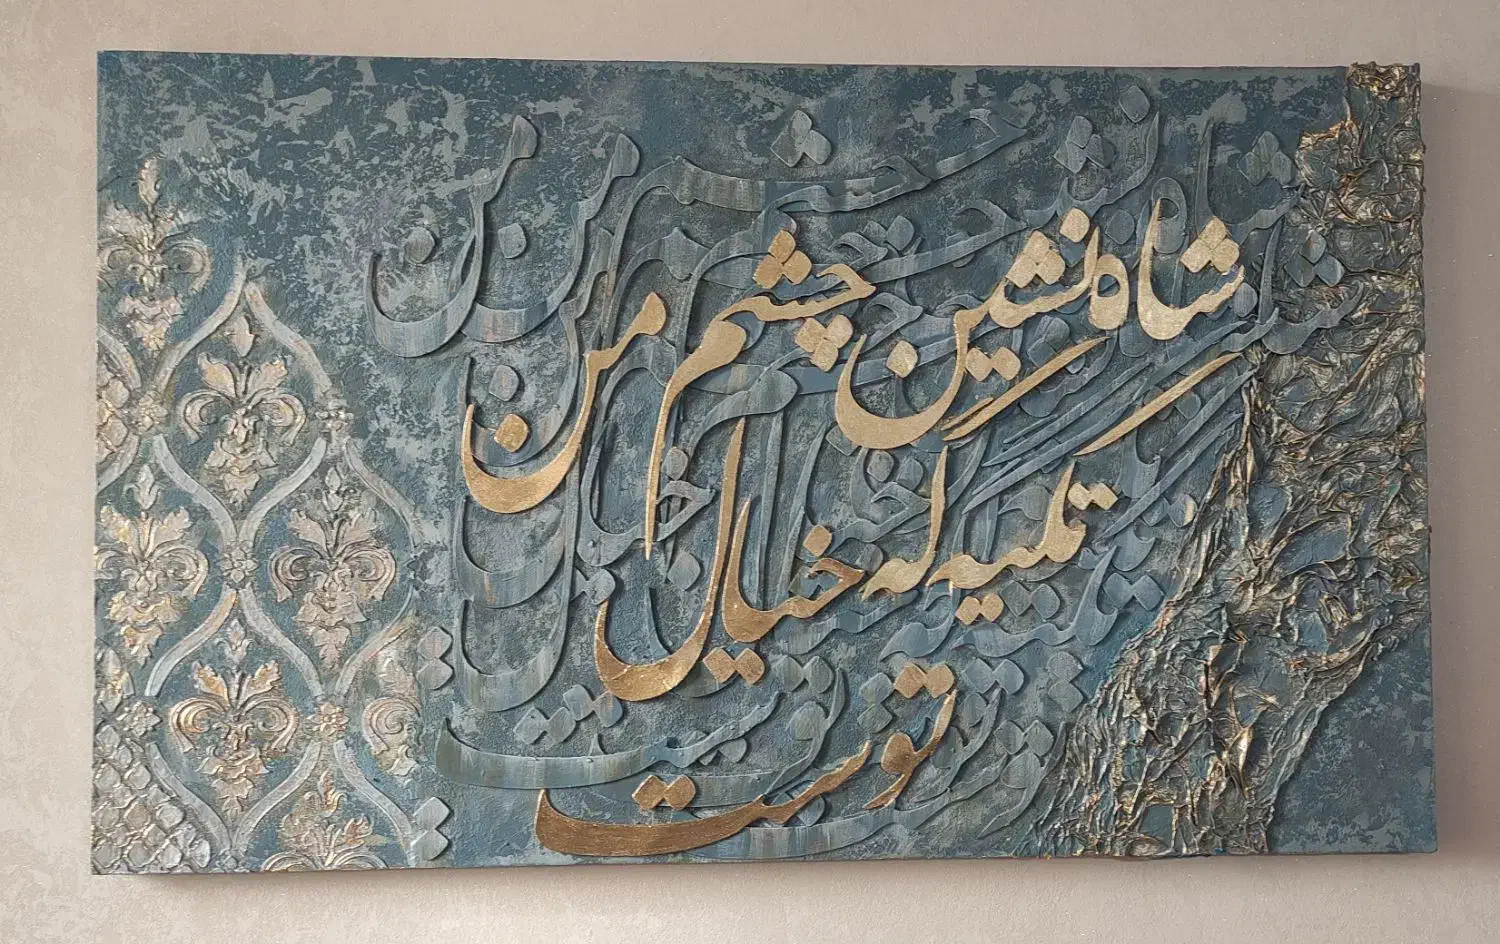 شاه‌نشین چشم من
تکیه گه خیال
توست